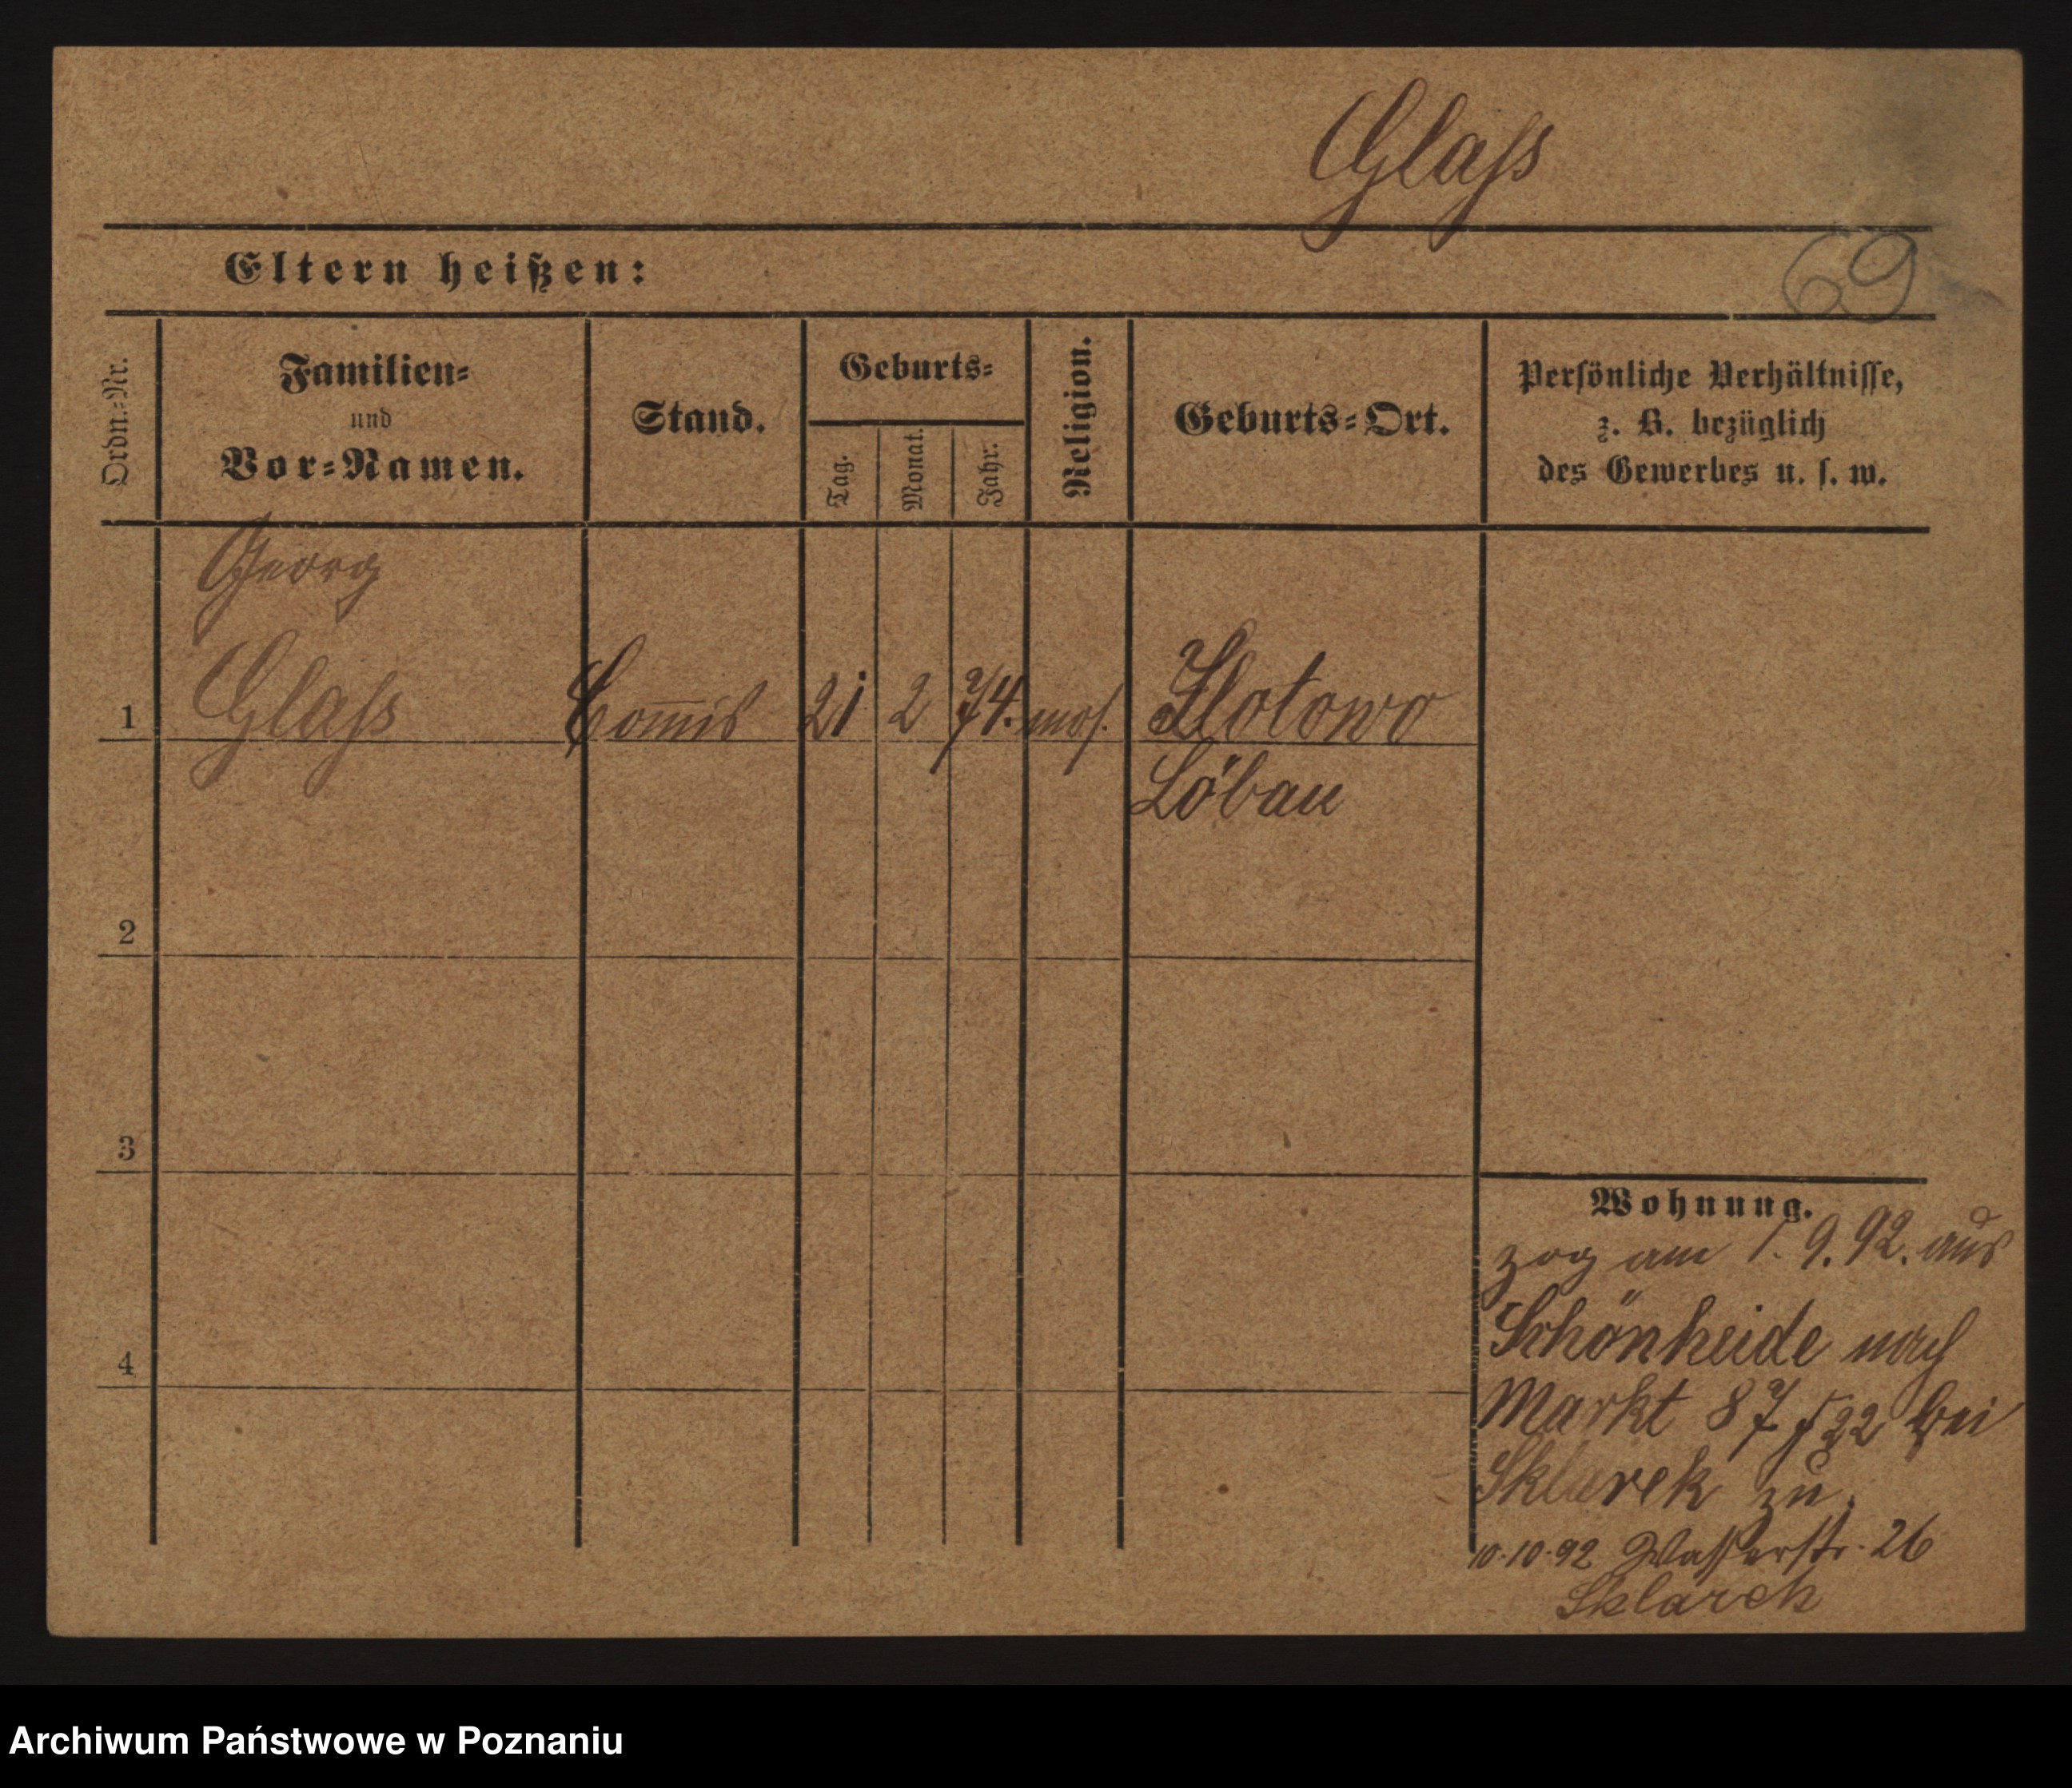 Glaſs
69
Eltern heißen:
Ordn.-Nr.
Familien-
und
Vor-Namen.
Stand.
Geburts-
Tag.
Monat.
Jahr.
Religion.
Geburts-Ort.
Perſönliche Verhältniſſe,
z. B. bezüglich
des Gewerbes u. ſ. w.
Georg
1 Glaſs Com̅is 21 2 74. moſ. Zlotowo
Löbau
2
3
4
Wohnung.
zog am 1. 9. 92. aus
Schönheide nach
Markt 87 bei
Sklarek zu.
10.10.92 Waſſerſtr. 26
Sklarek
Archiwum Państwowe w Poznaniu